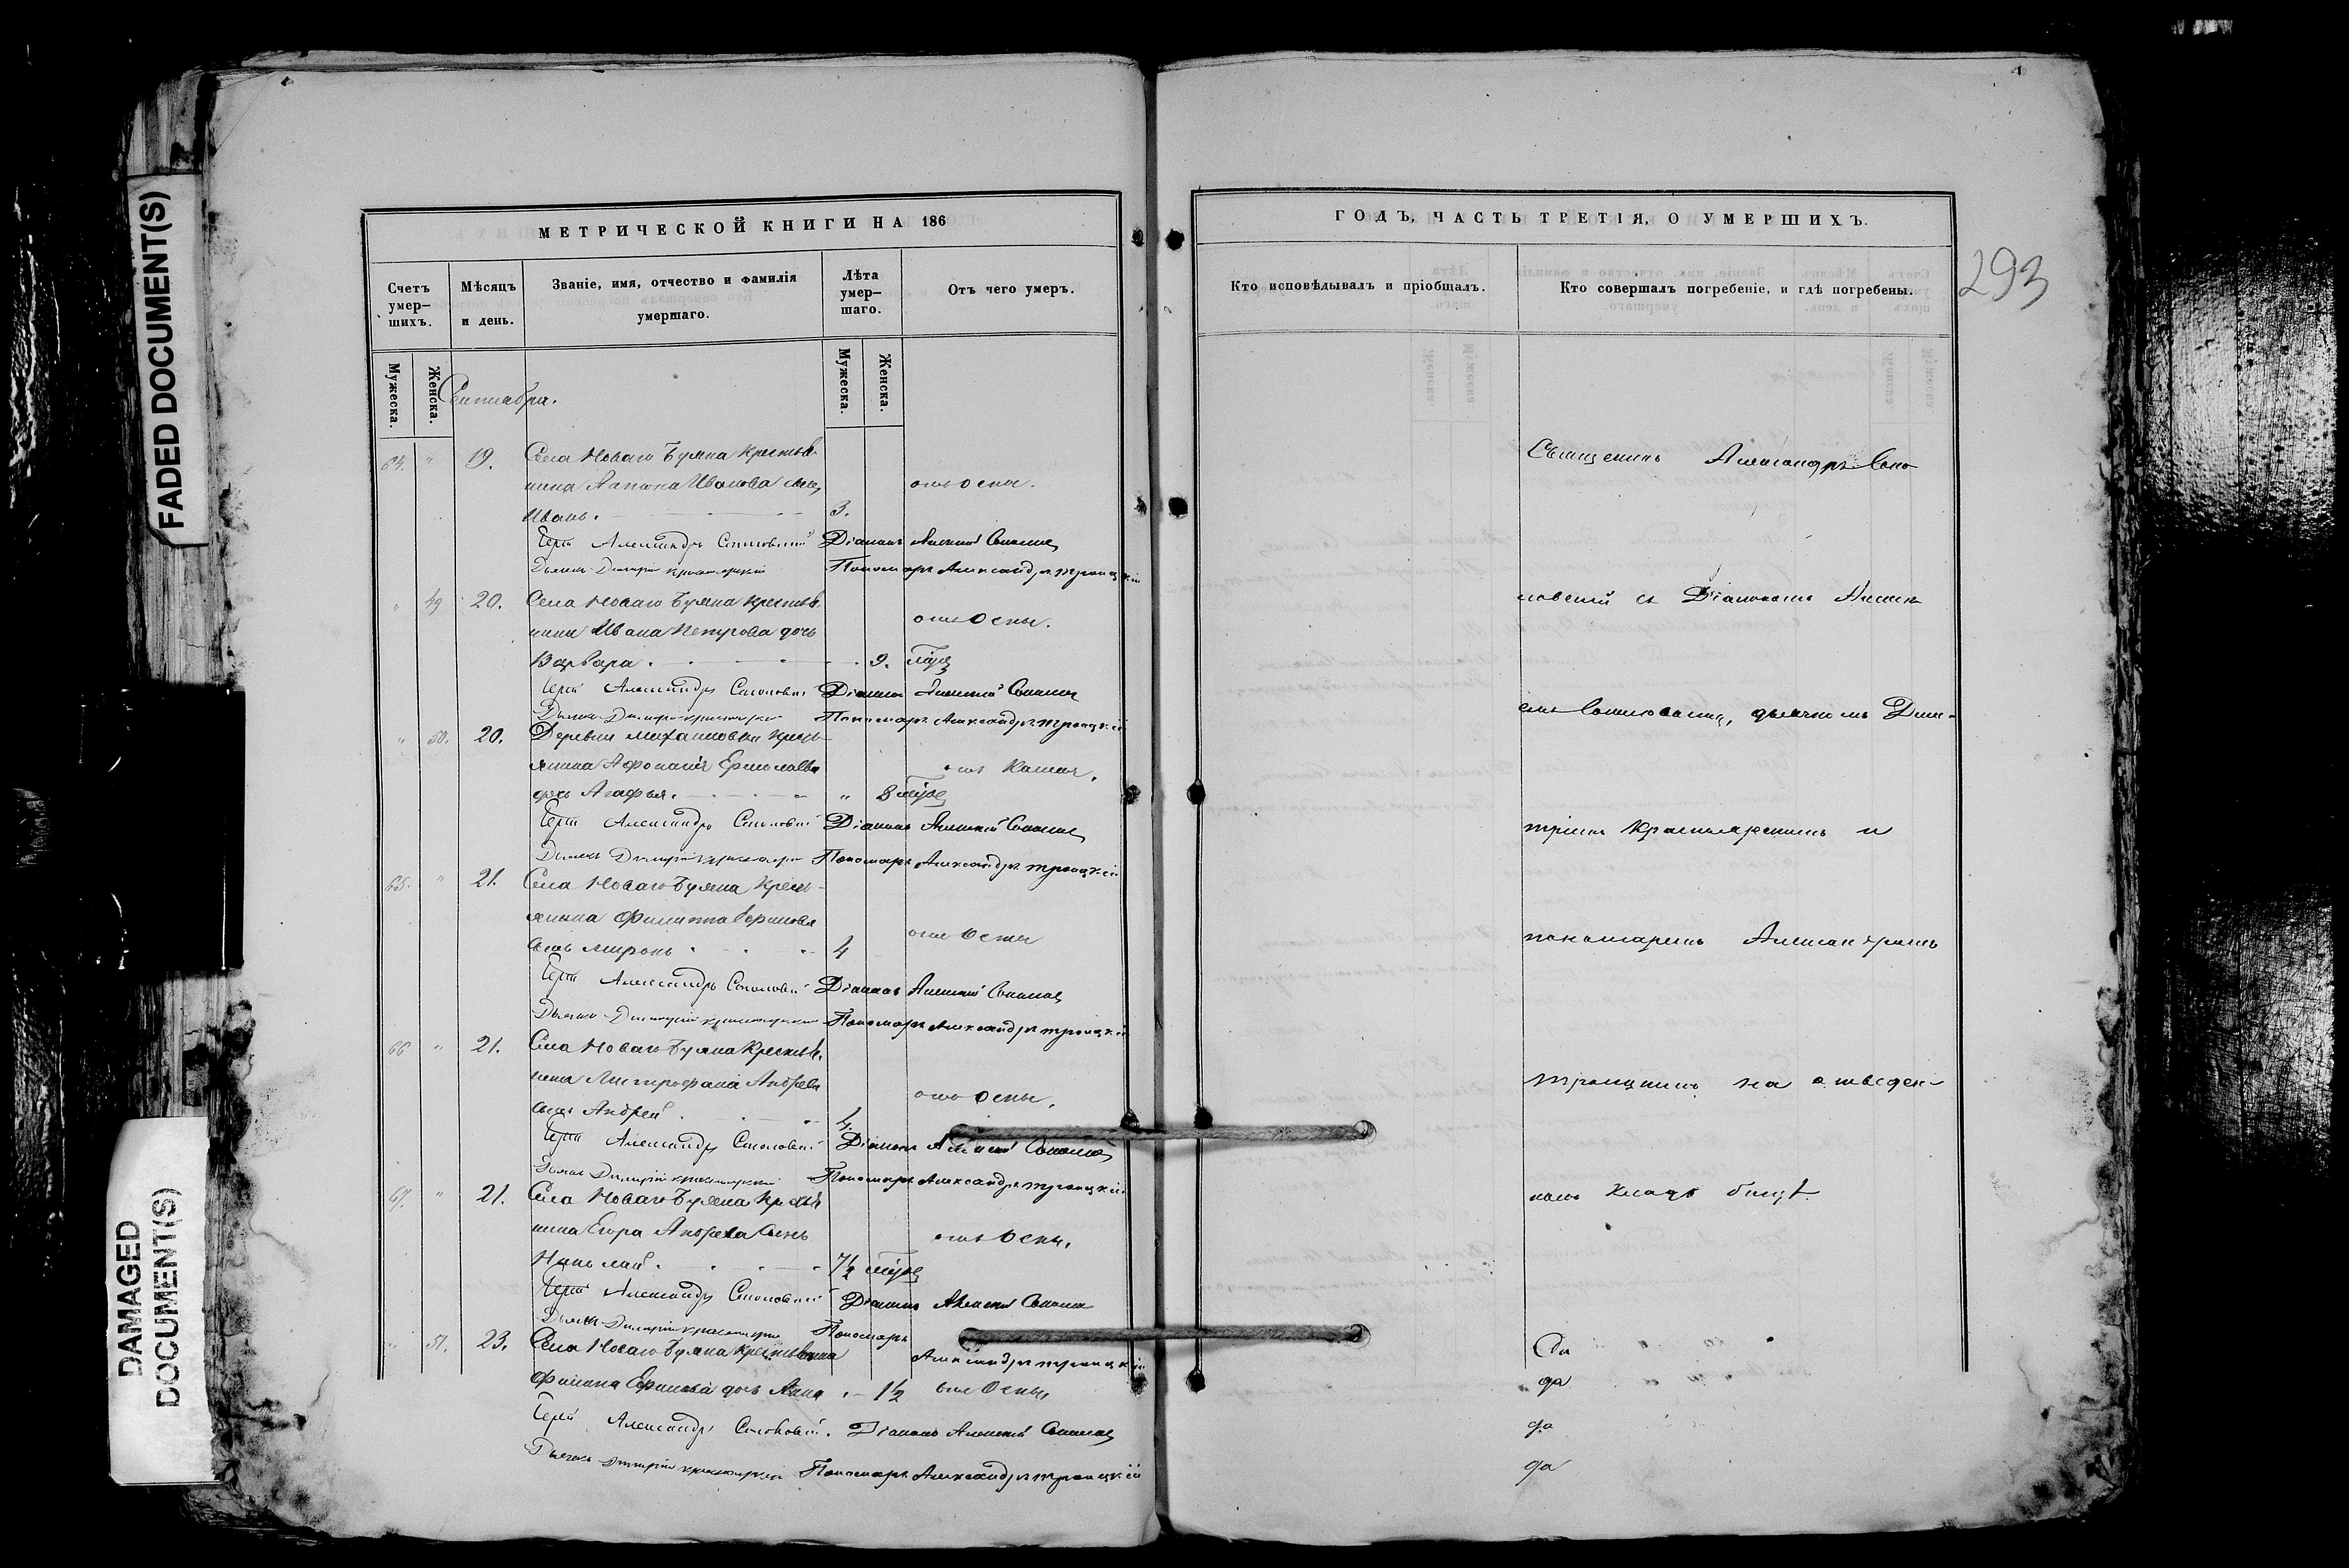 FADED DOCUMENT(S)
DAMAGED DOCUMENT(S)
МЕТРИЧЕСКОЙ КНИГИ НА 186
Счетъ умер-шихъ.
Мѣсяцъ и день.
Званіе, имя, отчество и фамилія умершаго.
Лѣта умер-шаго.
Отъ чего умеръ.
Мужеска.
Женска.
Мужеска.
Женска.
Сентября.
64. " 19. Села Новаго Буяна крестья-
нина Антона Иванова сынъ
отъ оспы.
Иванъ. 3.
Іерей Александръ Соколовскій Діаконъ Алексѣй
Дьячекъ Димитрій Красноярскій Пономарь Александръ Троицкій
" 49 20. Села Новаго Буяна крестья-
нина Ивана Петрова дочь
отъ оспы.
Варвара. 9.
Іерей Александръ Соколовскій Діаконъ Алексѣй
Дьячекъ Димитрій Красноярскій Пономарь Александръ Троицкій
" 50. 20. Деревни Михайловки кресть-
янина Афонасія Ермолаева
отъ кашля.
дочь Агафья. " 8
Іерей Александръ Соколовскій Діаконъ Алексѣй
Дьячекъ Димитрій Красноярскій Пономарь Александръ Троицкій
65. " 21. Села Новаго Буяна кресть-
янина Филиппа
отъ оспы
сынъ Миронъ 4
Іерей Александръ Соколовскій Діаконъ Алексѣй
Дьячекъ Димитрій Красноярскій Пономарь Александръ Троицкій
66 " 21. Села Новаго Буяна крестья-
нина Митрофана Андреева
отъ оспы.
сынъ Андрей 4.
Іерей Александръ Соколовскій Діаконъ Алексѣй
Дьячекъ Димитрій Красноярскій Пономарь Александръ Троицкій
67. " 21. Села Новаго Буяна крестья-
нина Егора Андреева сынъ
отъ оспы.
Николай. 7½
Іерей Александръ Соколовскій Діаконъ Алексѣй
Дьячекъ Димитрій Красноярскій Пономарь
Александръ Троицкій
" 51. 23. Села Новаго Буяна крестьянина
дочь Анна 1½ отъ оспы
Іерей Александръ Соколовскій. Діаконъ Алексѣй
Дьячекъ Димитрій Красноярскій Пономарь Александръ Троицкій
ГОДЪ, ЧАСТЬ ТРЕТІЯ, О УМЕРШИХЪ.
Кто исповѣдывалъ и пріобщалъ.
Кто совершалъ погребеніе, и гдѣ погребены.
293
Священникъ Александръ Соко-
ловскій съ Діакономъ Алексѣ-
дьячкомъ Дими-
тріемъ Красноярскимъ и
пономаремъ Александромъ
Троицкимъ на отведен-
номъ кладбищѣ
да
да
да